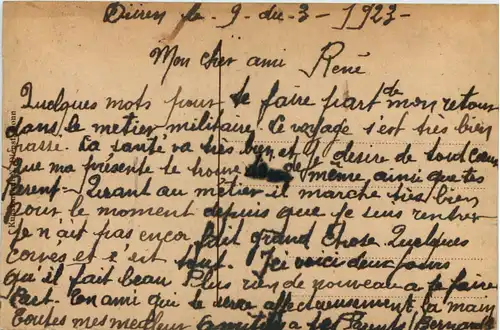 Düren le 9 du 3 - 1923 -
Mon cher ami René
Quelques mots pour te faire part de mon retour
dans le metier militaire. Le voyage s'est très bien
passé. La santé va très bien et je desire de tout cœur
que ma présente te trouve de même, ainsi que tes
parent - Quant au métier il marche très bien
pour le moment depuis que je suis rentrer
je n'ait pas encor fait grand chose. Quelques
corvés et s'est tout. Ici voici deux jours
qu'il fait beau. Plus rien de nouveau a te faire
part. Ton ami qui te serre affectueusement la main
Toutes mes meilleur a tes Parent